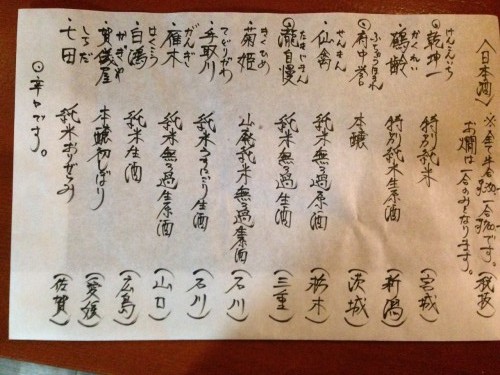 〈日本酒〉 ※全て半合 一合 です。(税抜)
お燗は一合のみとなります。
けんこんいち
・乾坤一 特別純米 (宮城)
かくれい
・鶴齢 特別純米生原酒 (新潟)
ふちゅうほまれ
・府中誉 本醸 (茨城)
せんきん
・仙禽 純米無ろ過原酒 (栃木)
たきじまん
・瀧自慢 純米無ろ過生酒 (三重)
きくひめ
・菊姫 山廃純米無ろ過生原酒 (石川)
てどりがわ
・手取川 純米うすにごり生酒 (石川)
がんぎ
・雁木 純米無ろ過生原酒 (山口)
はくこう
・白鴻 純米生酒 (広島)
かぎや
・賀儀屋 本醸初しぼり (愛媛)
しちだ
・七田 純米おりがらみ (佐賀)
◎辛口です。